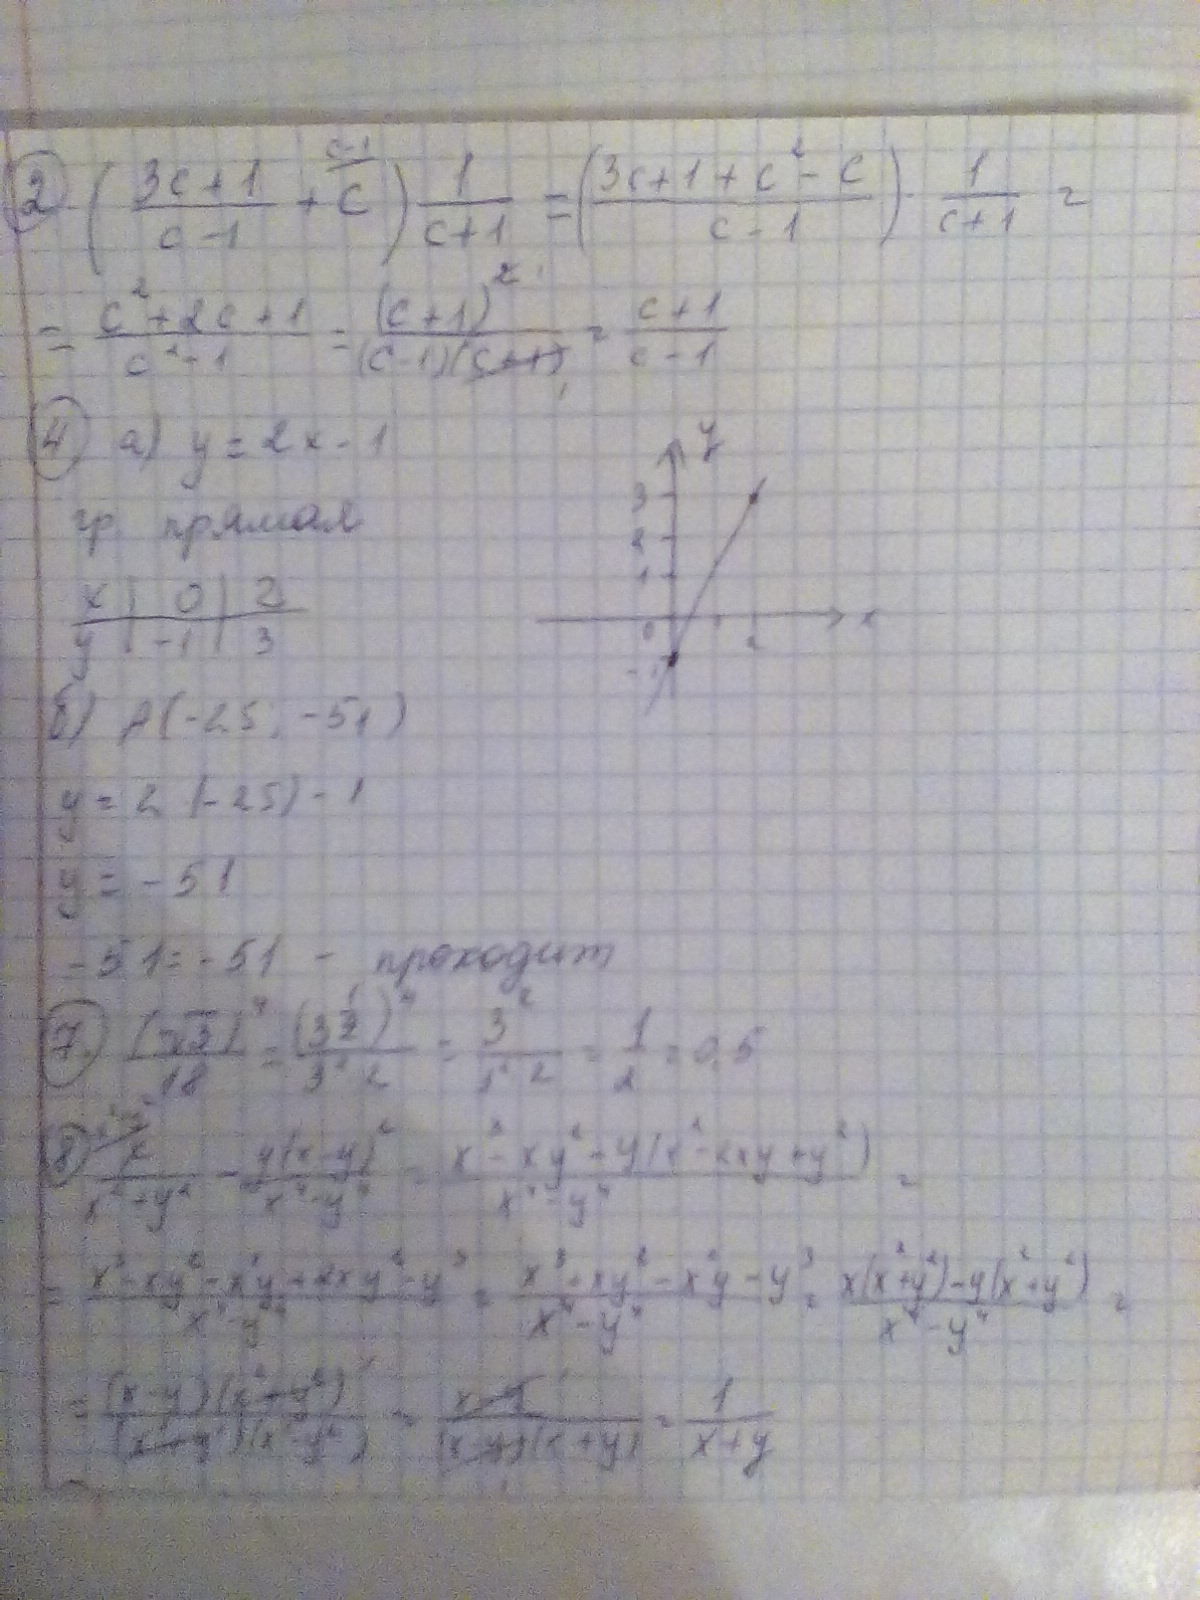 2. ( (3c+1)/(c-1) + c ) 1/(c+1) = ( (3c+1+c²-c)/(c-1) ) · 1/(c+1) =
c-1
= (c²+2c+1)/(c²-1) = (c+1)²/((c-1)(c+1)) = (c+1)/(c-1)
4. а) y = 2x-1
гр. прямая
x | 0 | 2
y | -1 | 3
y
3
2
1
0
2
x
-1
б) A(-25; -51)
y = 2(-25)-1
y = -51
-51 = -51 - проходит
7. (√3)⁴/18 = (3^(1/2))⁴/(3²·2) = 3²/(3²·2) = 1/2 = 0,5
8. x/(x²+y²) - y(x-y)²/(x⁴-y⁴) = (x³-xy²-y(x²-2xy+y²))/(x⁴-y⁴) =
= (x³-xy²-x²y+2xy²-y³)/(x⁴-y⁴) = (x³+xy²-x²y-y³)/(x⁴-y⁴) = (x(x²+y²)-y(x²+y²))/(x⁴-y⁴) =
= (x-y)(x²+y²)/((x²+y²)(x²-y²)) = (x-y)/((x-y)(x+y)) = 1/(x+y)